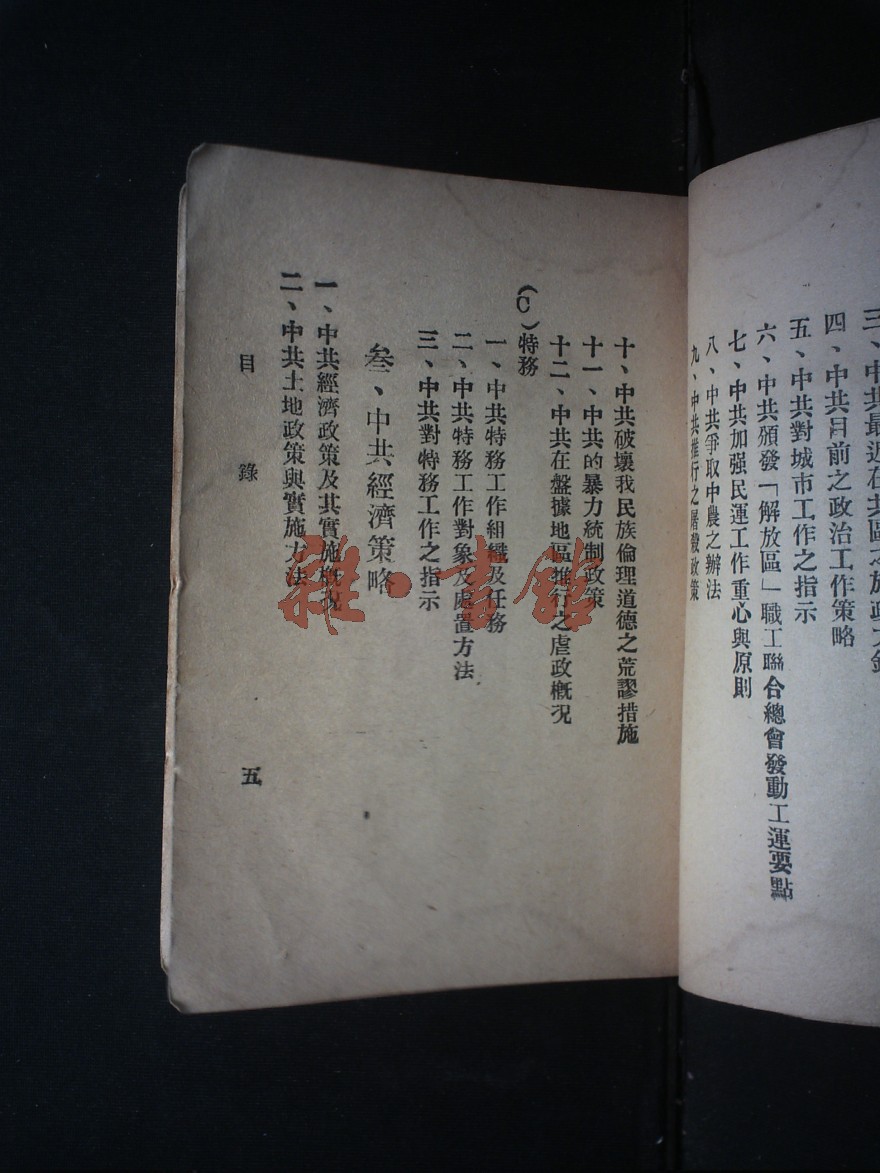 四、中共目前之政治工作策略
五、中共對城市工作之指示
六、中共頒發「解放區」職工聯合總會發動工運要點
七、中共加强民運工作重心與原則
八、中共爭取中農之辦法
九、中共推行之屠殺政策
十、中共破壞我民族倫理道德之荒謬措施
十一、中共的暴力統制政策
十二、中共在盤據地區推行之虐政概況
(C)特務
一、中共特務工作組織及任務
二、中共特務工作對象及處置方法
三、中共對特務工作之指示
叁、中共經濟策略
一、中共經濟政策及其實施概況
二、中共土地政策與實施方法
目錄
五
雜·書館